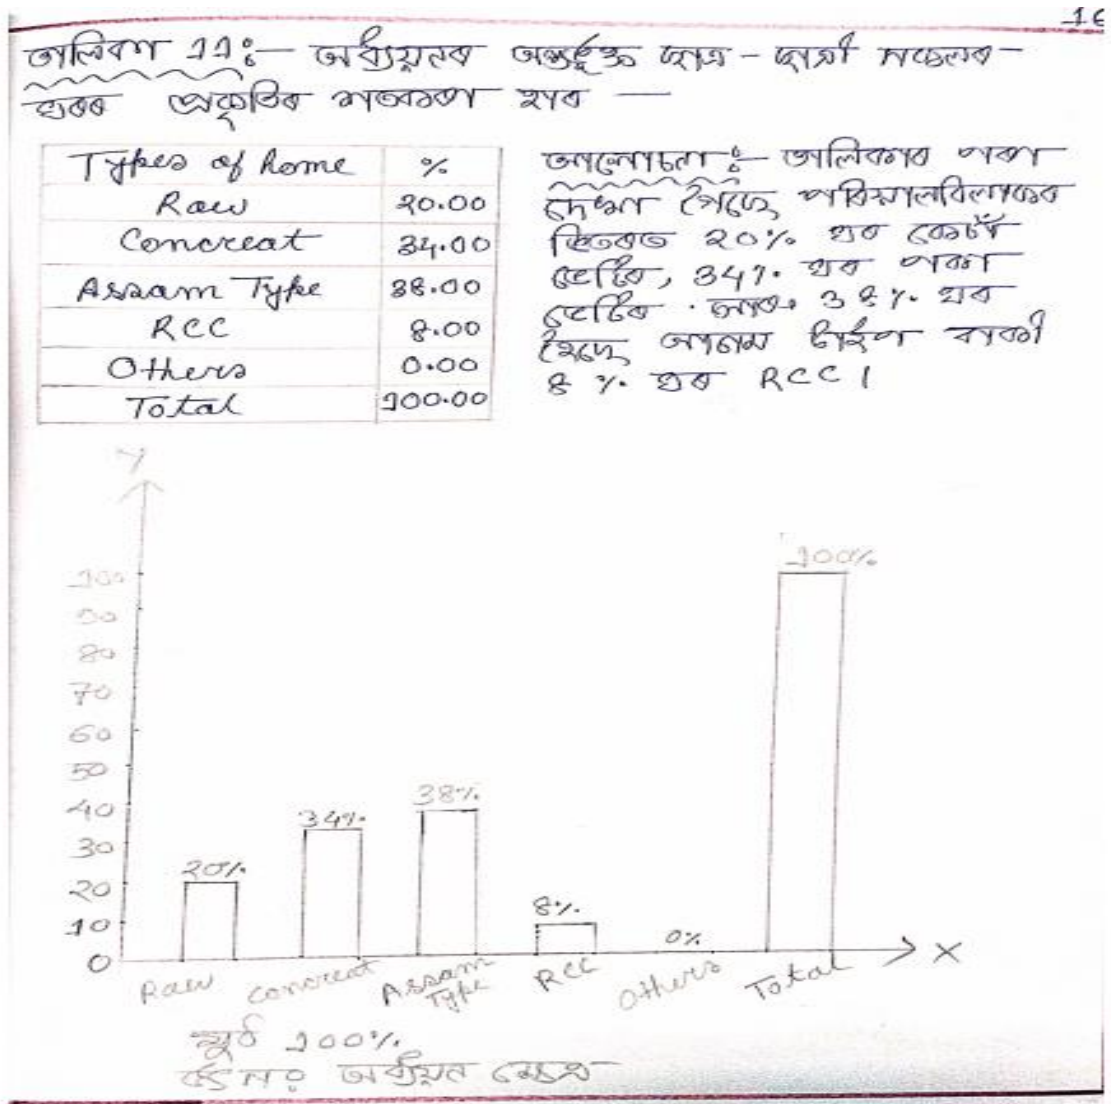 16
তালিকা 11ঃ— অধ্যয়নৰ অন্তৰ্ভূক্ত ছাত্ৰ - ছাত্ৰী সকলৰ
ঘৰৰ প্ৰকৃতিৰ শতকৰা হাৰ —
Types of home %
Raw 20.00
Concreat 34.00
Assam Type 38.00
RCC 8.00
Others 0.00
Total 100.00
আলোচনা ঃ— তালিকাৰ পৰা
দেখা গৈছে পৰিয়ালবিলাকৰ
ভিতৰত 20% ঘৰ কেচাঁ
ভেটিৰ, 34%. ঘৰ পকা
ভেটিৰ . আৰু 38%. ঘৰ
হৈছে আসাম টাইপ বাকী
8 %. ঘৰ RCC।
Y
100
90
80
70
60
50
40
30
20
10
0
20%
34%
38%
8%
0%
100%
X
Raw
Concreat
Assam
Type
RCC
Others
Total
মুঠ 100%
উৎসঃ অধ্যয়ন ক্ষেত্ৰ